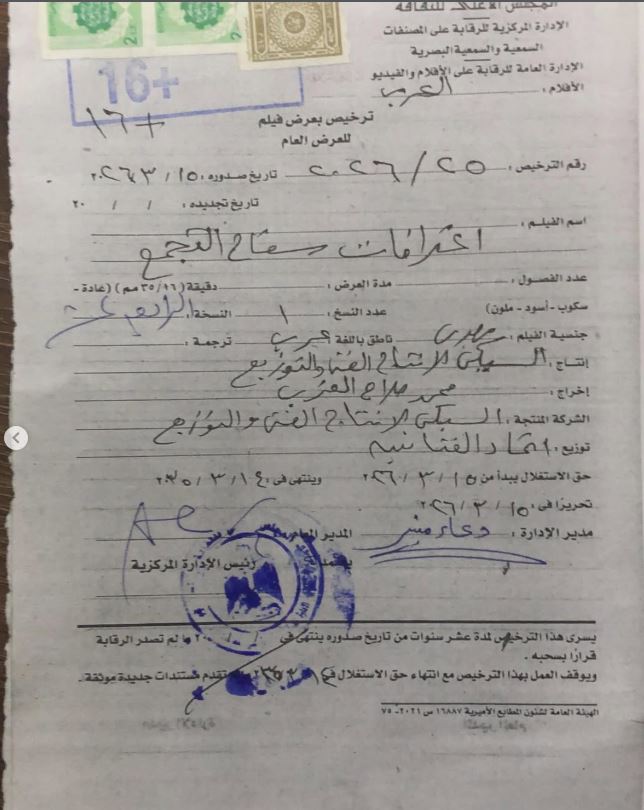 المجلس الأعلى للثقافة
الإدارة المركزية للرقابة على المصنفات
السمعية والسمعية البصرية
الإدارة العامة للرقابة على الأفلام والفيديو
الأفلام : العربى
16+
+١٦
ترخيص بعرض فيلم
للعرض العام
رقم الترخيص : ٢٠٢٦/٢٥ تاريخ صدوره : ١٥ / ٣ / ٢٠٢٦
تاريخ تجديده : / / ٢٠
اسم الفيلم :
اعترافات سفاح التجمع
عدد الفصول : مدة العرض : دقيقة (٣٥/١٦ مم) (عادة -
سكوب - أسود - ملون) عدد النسخ : ١ النسخة :
جنسية الفيلم : مصرى ناطق باللغة : عربى ترجمة :
إنتاج : السبكى للإنتاج الفنى والتوزيع
إخراج : محمد صلاح العزب
الشركة المنتجة : السبكى للإنتاج الفنى والتوزيع
توزيع : اتحاد الفنانين
حق الاستغلال يبدأ من ١٥ / ٣ / ٢٠٢٦ وينتهى فى : ١٤ / ٣ /
تحريرًا فى : ١٥ / ٣ / ٢٠٢٦
مدير الإدارة : دعاء منير المدير العام
يعتمد رئيس الإدارة المركزية
يسرى هذا الترخيص لمدة عشر سنوات من تاريخ صدوره ينتهى فى / / ٢٠ ما لم تصدر الرقابة
قرارًا بسحبه .
ويوقف العمل بهذا الترخيص مع انتهاء حق الاستغلال فى تقدم مستندات جديدة موثقة .
الهيئة العامة لشئون المطابع الأميرية ١٦٨٨٧ س ٢٠٢١ - ٧٥